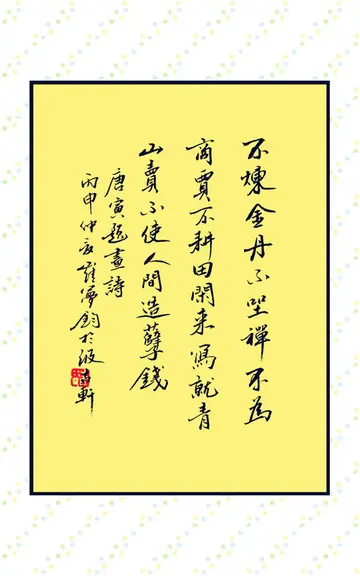 不煉金丹不坐禪不為
商賈不耕田閑来寫就青
山賣不使人間造孽錢
唐寅題畫詩
丙申仲秋羅夢鈞於
軒